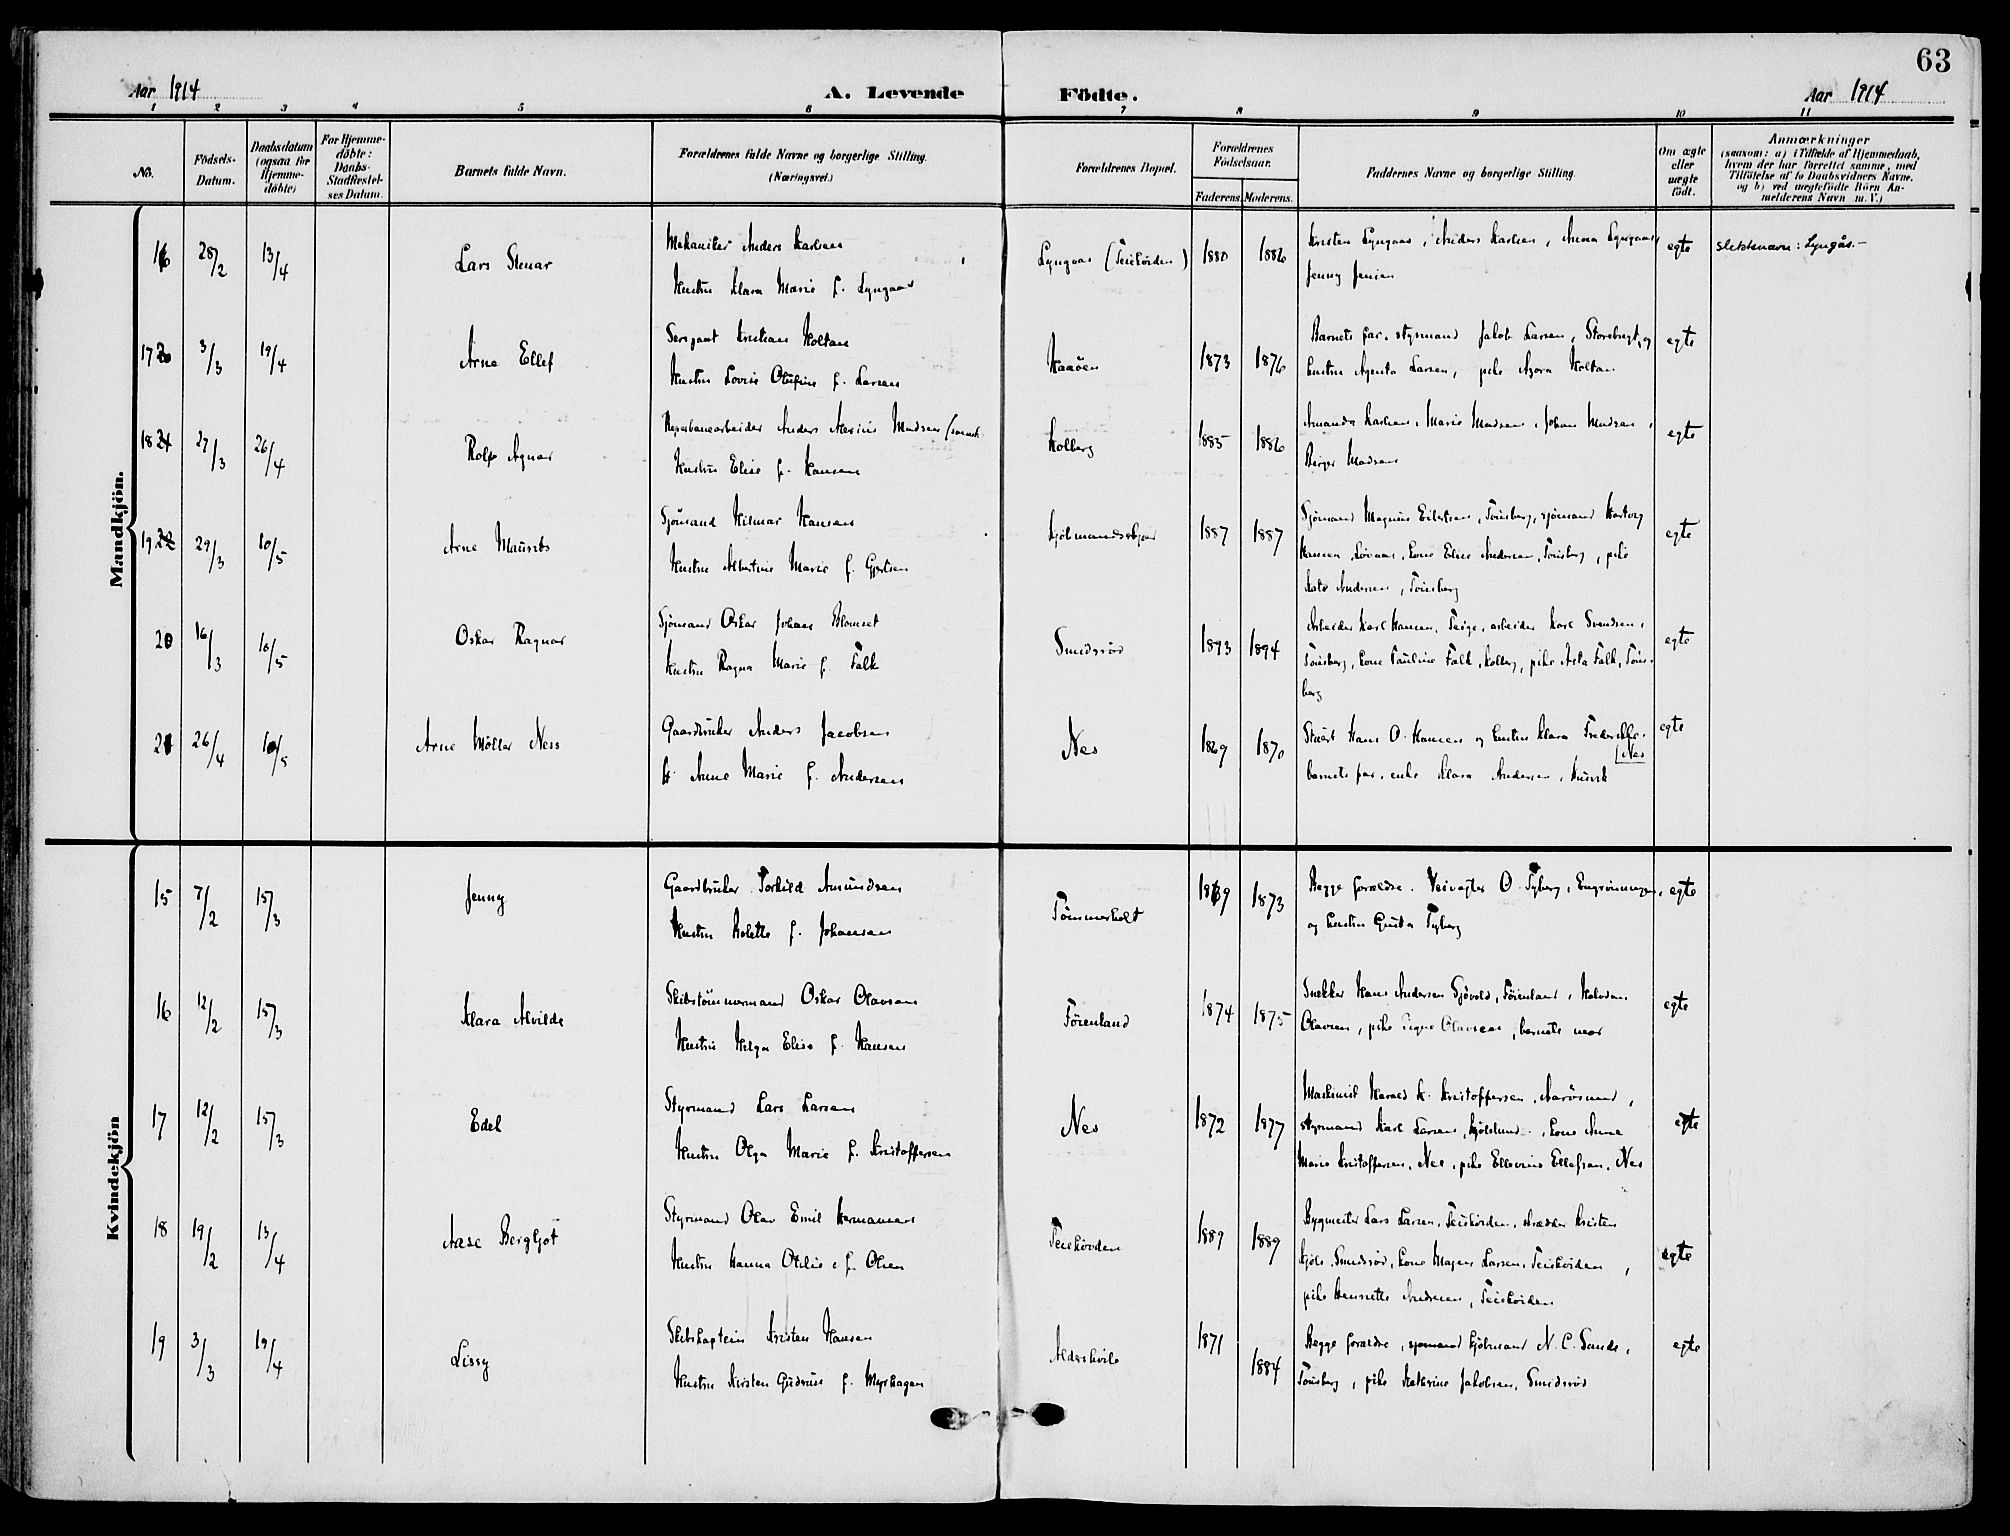 63
Aar 1914
A. Levende Födte.
Aar 1914
1 2 3 4 5 6 7 8 9 10 11
No.
Födsels-
Datum.
Daabsdatum
(ogsaa for
Hjemme-
döbte)
For Hjemme-
döbte:
Daabs-
Stadfæstel-
ses Datum.
Barnets fulde Navn.
Forældrenes fulde Navne og borgerlige Stilling.
(Næringsvei.)
Forældrenes Bopæl.
Forældrenes
Födselsaar.
Faderens. Moderens.
Faddernes Navne og borgerlige Stilling.
Om ægte
eller
uægte
födt.
Anmærkninger
(saasom: a) i Tilfælde af Hjemmedaab,
hvem der har forrettet samme, med
Tilföielse af to Daabsvidners Navne,
og b) ved uægtefödte Börn An-
melderens Navn m. V.)
Mandkjön.
16 28/2 13/4 Lars Steinar
Mekaniker Anders Karlsen
Hustru Klara Marie f. Lyngaas
Lyngaas (Teiehöiden) 1880 1886
Kristen Lyngaas, Anders Karlsen, Anna Lyngaas,
Jenny Jensen
egte slektsnavn: Lyngås.-
17 3/3 19/4 Arne Ellef
Sersjant Kristian Holtan
Hustru Lovise Olufine f. Larsen
Kaaöen 1873 1876
Barnets far, styrmand Jakob Larsen, og
hustru Agenta Larsen, pike Agora Holtan
egte
18 27/3 26/4 Rolf Agnar
Reperbanearbeider Anders Marius Madsen
Hustru Elise f. Hansen
Kolberg 1885 1886
Amanda Karlsen, Marie Madsen, Johan Madsen,
Birger Madsen
egte
19 29/3 10/5 Arne Mauritz
Sjömand Hilmar Hansen
Hustru Albertine Marie f. Gjertsen
Kjöbmandskjær 1887 1887
Sjömand Magnus Eilertsen, Tönsberg, sjömand Hartvig
Hansen, kone Elise Andersen, Tönsberg, pike
Andersen, Tönsberg
egte
20 16/3 10/5 Oskar Ragnar
Sjömand Oskar Johan Blomset
Hustru Ragna Marie f. Falk
Smidsröd 1893 1894
Arbeider Karl Hansen, Teige, arbeider Karl Svendsen,
Tönsberg, kone Pauline Falk, Kolberg, pike Asta Falk, Töns-
berg
egte
21 26/4 10/5 Arne Möller Ness
Gaardbruker Anders Jacobsen
H. Anne Marie f. Andersen
Nes 1869 1870
Stuert Hans O. Hansen og hustru Klara Fredrikke.
Nes
barnets far, enke Klara Andersen, Husvik
egte
Kvindekjön
15 7/2 15/3 Jenny
Gaardbruker Torkild Amundsen
Hustru Kolette f. Johansen
Tömmerholt 1869 1873
Begge forældre. Veivogter O. Tyberg,
og hustru Gusta Tyberg
egte
16 12/2 15/3 Klara Alvilde
Skibstömmermand Oskar Olavsen
Hustru Helga Elise f. Hansen
Föienland 1874 1875
Snekker Hans Andersen Sjövold, Föienland, Halvdan
Olavsen, pike Signe Olavsen, barnets mor
egte
17 12/2 15/3 Edel
Styrmand Lars Larsen
Hustru Olga Marie f. Kristoffersen
Nes 1872 1877
Maskinist Harald H. Kristoffersen, Aarösund,
styrmand Karl Larsen, kone Anne
Marie Kristoffersen, Nes, pike Ellevine Ellefsen, Nes
egte
18 19/2 13/4 Aase Bergljot
Styrmand Olav Emil Hermansen
Hustru Hanna Otilie f. Olsen
Teiehöiden 1889 1889
Bygmester Lars Larsen, Teiehöiden, skrædder Kristen
Kjöle, Smidsröd, kone Magna Larsen, Teiehöiden,
pike Henriette Andresen, Teiehöiden
egte
19 3/3 19/4 Lissy
Skibskaptein Kristen Hansen
Hustru Kirsten Gudrun f. Myrhagen
Aldershvile 1871 1884
Begge forældre, kjöbmand N. C. Sunde,
Tönsberg, pike Kathrine Jakobsen, Smidsröd
egte